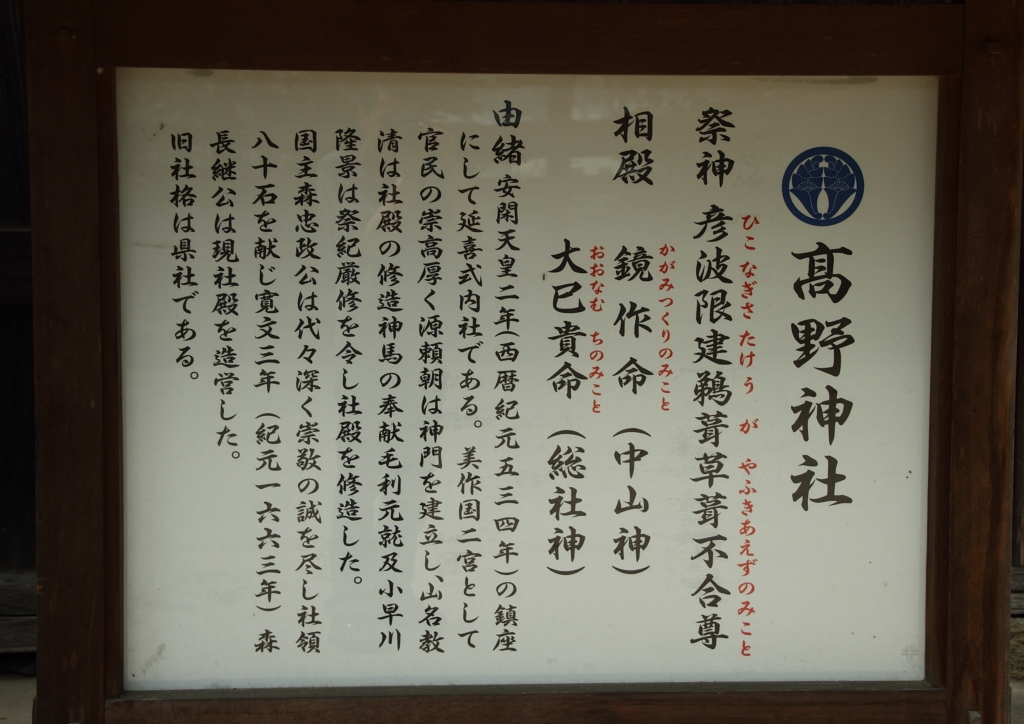 髙野神社
ひこ なぎさ たけ う が やふきあえずのみこと
祭神 彦波限建鵜葺草葺不合尊
かがみつくりのみこと
相殿 鏡作命(中山神)
おおなむ ちのみこと
大已貴命(総社神)
由緒 安閑天皇二年(西暦紀元五三四年)の鎮座
にして延喜式内社である。美作国二宮として
官民の崇高厚く源頼朝は神門を建立し、山名教
清は社殿の修造神馬の奉献毛利元就及小早川
隆景は祭紀厳修を令し社殿を修造した。
国主森忠政公は代々深く崇敬の誠を尽し社領
八十石を献じ寛文三年(紀元一六六三年)森
長継公は現社殿を造営した。
旧社格は県社である。